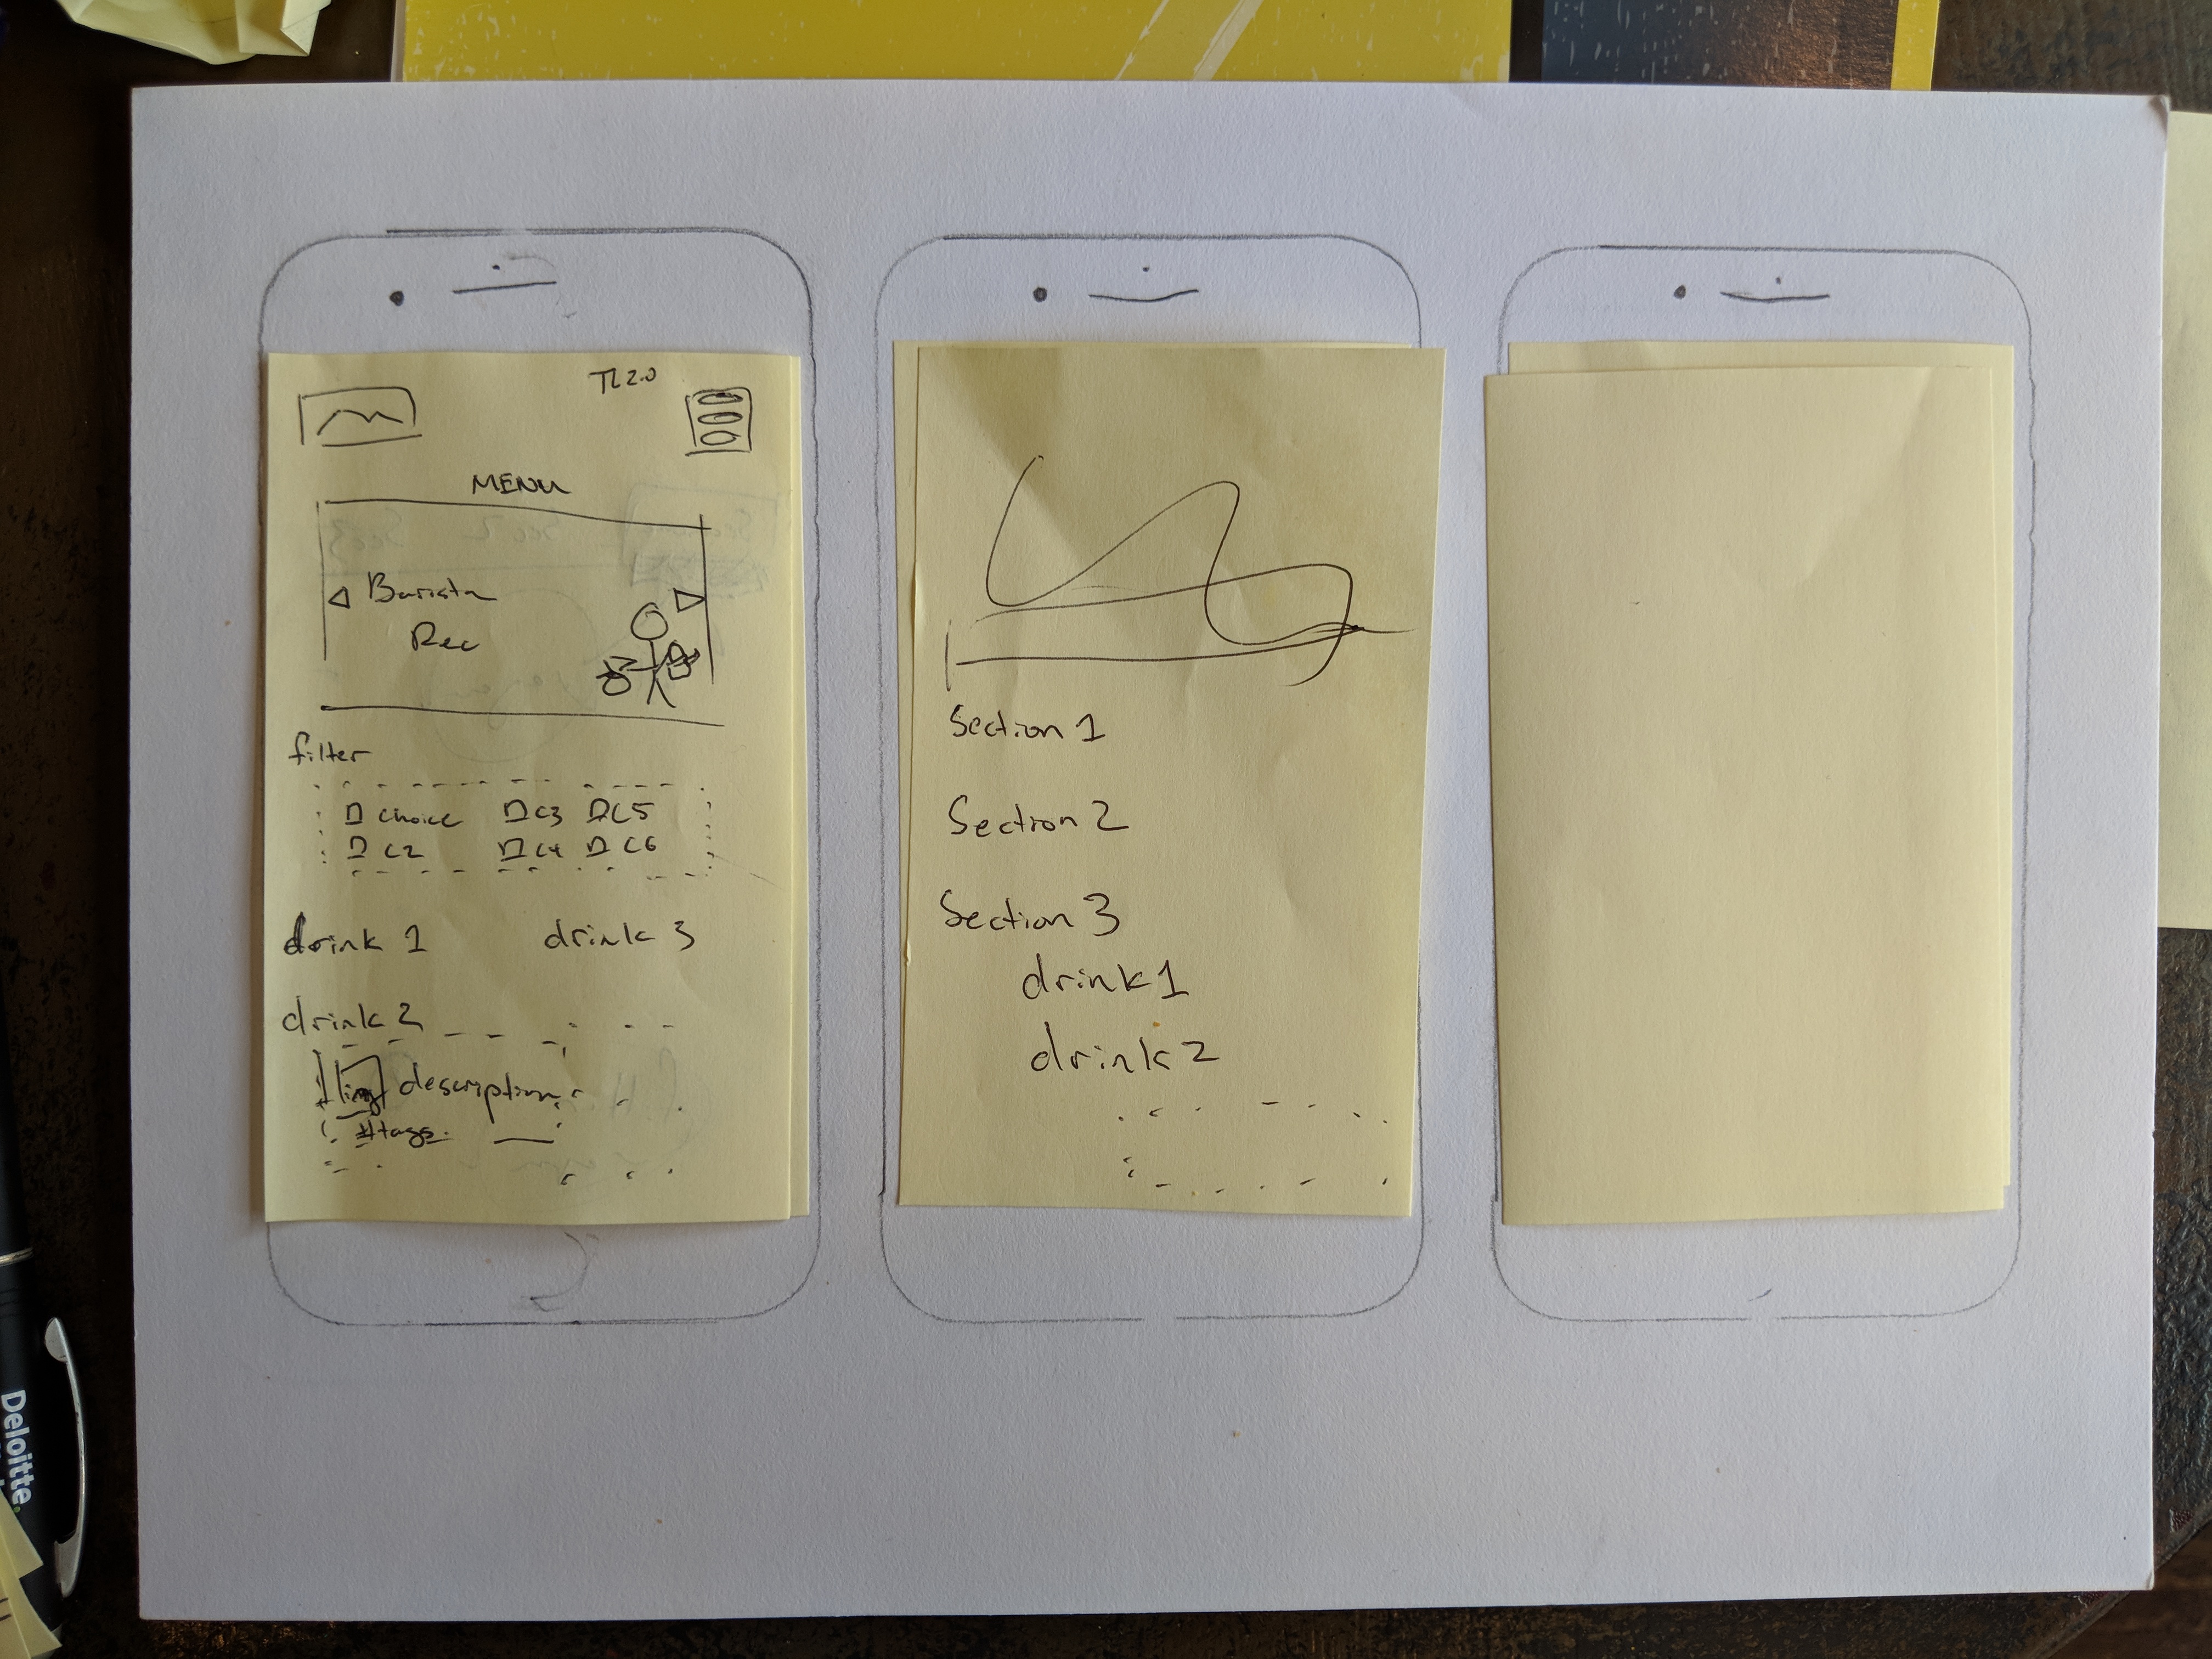 TL 2.0
MENU
Barista
Rec
filter
choice C3 C5
C2 C4 C6
drink 1 drink 3
drink 2
img description
#tags
Section 1
Section 2
Section 3
drink 1
drink 2
Deloitte.